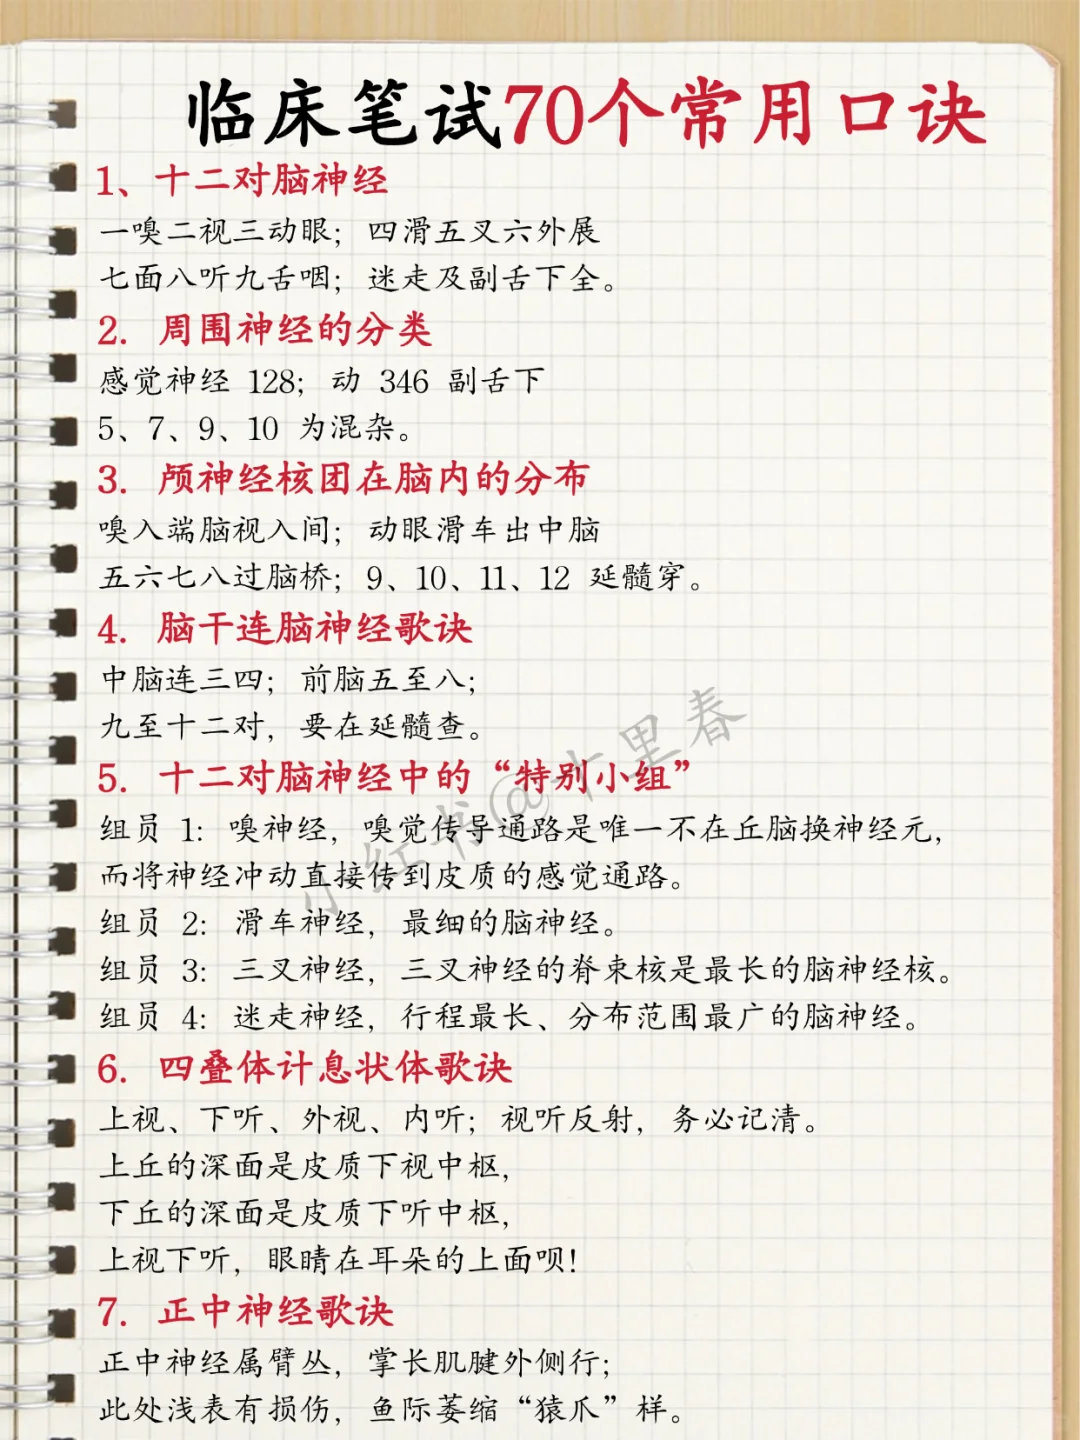 临床笔试70个常用口诀
1、十二对脑神经
一嗅二视三动眼；四滑五叉六外展
七面八听九舌咽；迷走及副舌下全。
2. 周围神经的分类
感觉神经 128；动 346 副舌下
5、7、9、10 为混杂。
3. 颅神经核团在脑内的分布
嗅入端脑视入间；动眼滑车出中脑
五六七八过脑桥；9、10、11、12 延髓穿。
4. 脑干连脑神经歌诀
中脑连三四；前脑五至八；
九至十二对，要在延髓查。
5. 十二对脑神经中的“特别小组”
组员 1：嗅神经，嗅觉传导通路是唯一不在丘脑换神经元，
而将神经冲动直接传到皮质的感觉通路。
组员 2：滑车神经，最细的脑神经。
组员 3：三叉神经，三叉神经的脊束核是最长的脑神经核。
组员 4：迷走神经，行程最长、分布范围最广的脑神经。
6. 四叠体计息状体歌诀
上视、下听、外视、内听；视听反射，务必记清。
上丘的深面是皮质下视中枢，
下丘的深面是皮质下听中枢，
上视下听，眼睛在耳朵的上面呗!
7. 正中神经歌诀
正中神经属臂丛，掌长肌腱外侧行；
此处浅表有损伤，鱼际萎缩“猿爪”样。
小红书@十里春